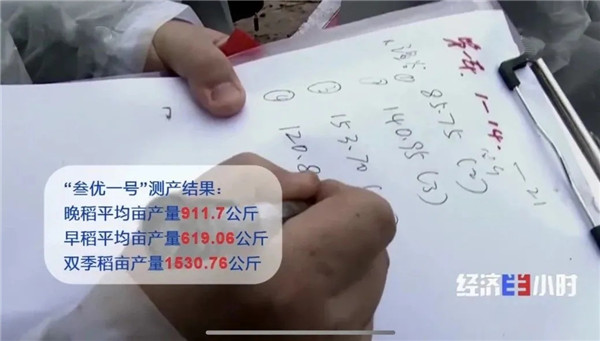 85.75 (2)
140.95 (3)
153.70
120.8
“叁优一号”测产结果：
晚稻平均亩产量911.7公斤
早稻平均亩产量619.06公斤
双季稻亩产量1530.76公斤
经济半小时